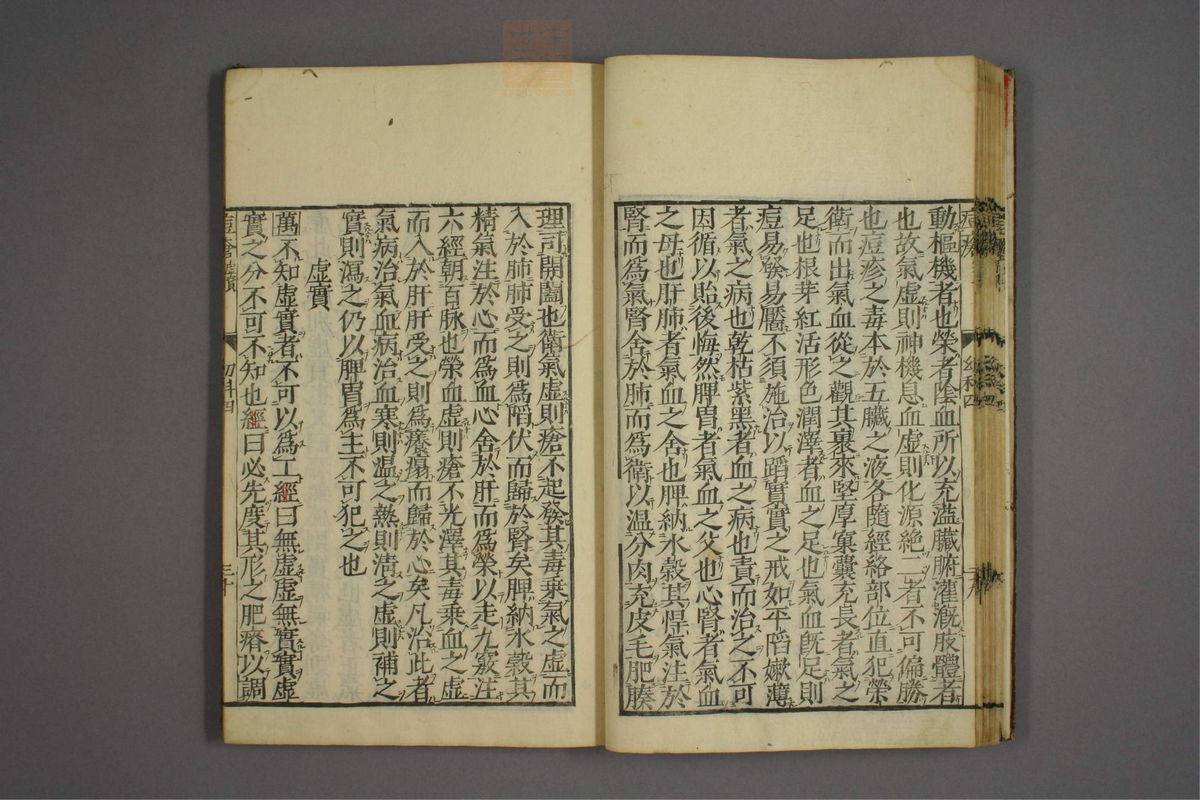 動樞機者也榮者陰血所以充溫臟腑灌溉肢體者
也故氣虛則神機息血虛則化源絕二者不可偏勝
也痘疹之毒本於五臟之液各隨經絡部位直犯榮
衛而出氣血從之觀其裹來堅厚窠囊充長者氣之
足也根芽紅活形色潤澤者血之足也氣血既足則
痘易發易靨不須施治以蹈實實之戒如平陷嫩薄
者氣之病也乾枯紫黑者血之病也責而治之不可
因循以貽後悔然脾胃者氣血之父也心腎者氣血
之母也肝肺者氣血之舍也脾納水穀其悍氣注於
腎而為氣腎舍於肺而為衛以温分肉充皮毛肥腠
理司開闔也衛氣虛則瘡不起發其毒乘氣之虛而
入於肺肺受之則為陷伏而歸於腎矣脾納水穀其
精氣注於心而為血心舍於肝而為榮以走九竅注
六經朝百脉也榮血虛則瘡不光澤其毒乘血之虛
而入於肝肝受之則為癰瘍而歸於心矣凡治此者
氣病治氣血病治血寒則温之熱則清之虛則補之
實則瀉之仍以脾胃為主不可犯之也
虛實
萬不知虛實者不可以為工經曰無虛虛無實實虛
實之分不可不知也經曰必先度其形之肥瘠以調
三十